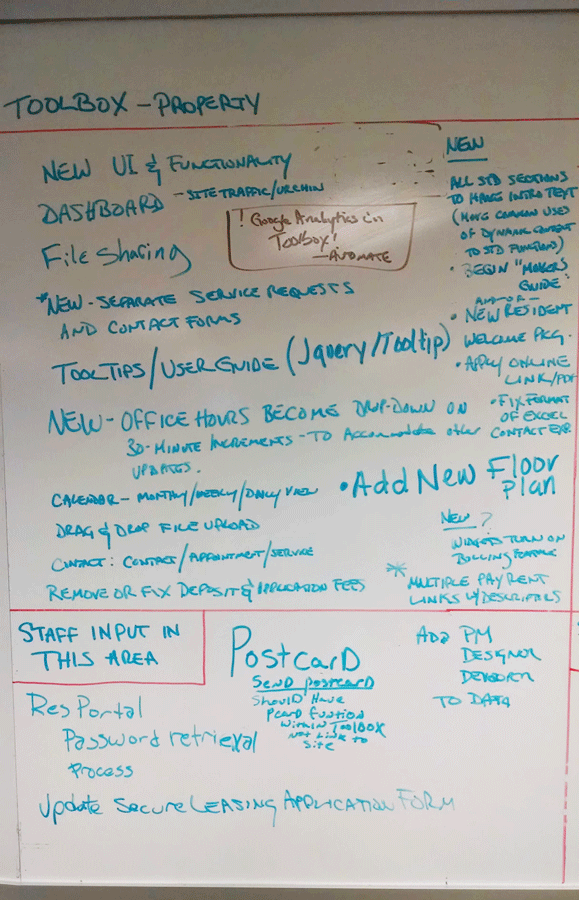 TOOLBOX - PROPERTY
NEW UI & FUNCTIONALITY
DASHBOARD - SITE TRAFFIC/URCHIN
! Google Analytics in
Toolbox!
- AUTOMATE
File Sharing
*NEW - SEPARATE SERVICE REQUESTS
AND CONTACT FORMS
TOOLTIPS/USER GUIDE (Jquery/Tooltip)
NEW - OFFICE HOURS BECOME DROP-DOWN ON
30-MINUTE INCREMENTS - TO Accommodate other
UPDATES.
CALENDAR - MONTHLY/WEEKLY/DAILY VIEW
DRAG & DROP FILE UPLOAD
CONTACT: CONTACT/APPOINTMENT/SERVICE
REMOVE OR FIX DEPOSIT & APPLICATION FEES
NEW
ALL STD SECTIONS
TO HAVE INTRO TEXT
(MOVE COMMON USES
OF DYNAMIC CONTENT
TO STD FUNCTION)
• BEGIN "MOVERS
GUIDE"
• NEW RESIDENT
WELCOME PKG.
• APPLY ONLINE
LINK/PDF
• FIX FORMAT
OF EXCEL
CONTACT EXP.
• Add New Floor
Plan
NEW?
WIDGETS TURN ON
BILLING FEATURE
* MULTIPLE PAYMENT
LINKS W/DESCRIPTIONS
STAFF INPUT IN
THIS AREA
ResPortal
Password retrieval
Process
Update Secure LEASING APPLICATION FORM
PostcarD
SEND postcard
SHOULD Have
Pcard Function
WITHIN TOOLBOX
NOT LINK TO
Site
ADD PM
DESIGNER
DEVELOPER
TO DATA